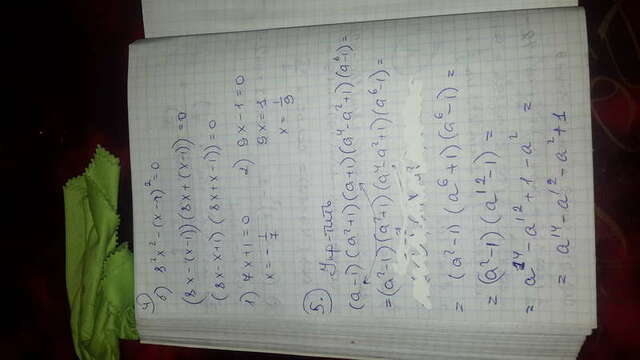 4)
б) 8²x² - (x-1)² = 0
(8x - (x-1)) (8x + (x-1)) = 0
(8x - x + 1) (8x + x - 1) = 0
1) 7x + 1 = 0 2) 9x - 1 = 0
x = - 1/7 9x = 1
x = 1/9
5.
(a-1)(a²+1)(a+1)(a⁴-a²+1)(a⁶-1) =
= (a²-1)(a²+1)(a⁴-a²+1)(a⁶-1) =
= (a²-1) (a⁶+1) (a⁶-1) =
= (a²-1) (a¹²-1) =
= a¹⁴ - a¹² + 1 - a² =
= a¹⁴ - a¹² - a² + 1